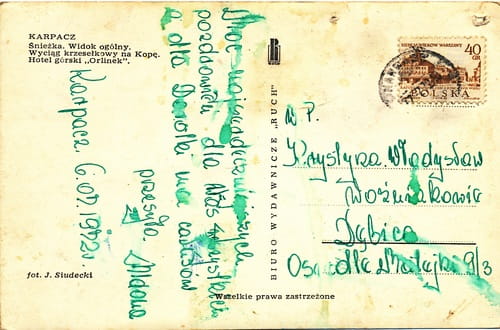 KARPACZ
Śnieżka. Widok ogólny.
Wyciąg krzesełkowy na Kopę.
Hotel górski „Orlinek".
Karpacz 6.07.1972r.
Moc najserdeczniejszych
pozdrowień dla Was wszystkich
a dla Dorotki
przesyła
fot. J. Siudecki
BIURO WYDAWNICZE „RUCH"
Wszelkie prawa zastrzeżone
40
GR
POLSKA
W.P.
Krystyna Władysław
Woźniakowie
Dębica
9/3